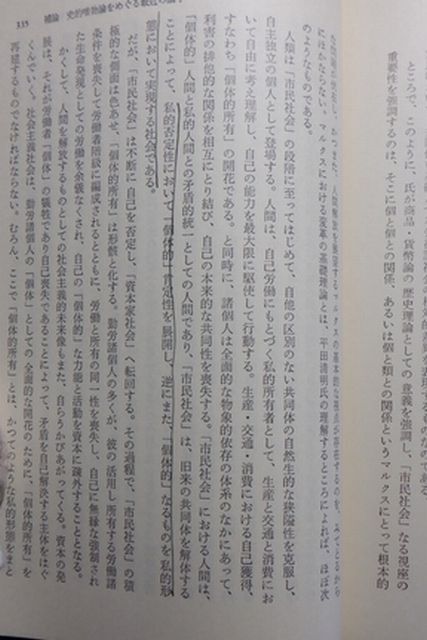 ところで、このように、氏が商品・貨幣論の歴史理論としての意義を強調し、「市民社会」なる視座の
重要性を強調するのは、そこに個と個との関係、あるいは個と類との関係というマルクスにとって根本的
335 補論 史的唯物論をめぐる最近の
にほかならない。マルクスにおける変革の基礎理論とは、平田清明氏の理解するところによれば、ほぼ次
のようなものである。
人類は「市民社会」の段階に至ってはじめて、自他の区別のない共同体の自然生的な狭隘性を克服し、
自主独立の個人として登場する。人間は、自己労働にもとづく私的所有者として、生産と交通と消費にお
いて自由に考え理解し、自己の能力を最大限に駆使して行動する。生産・交通・消費における自己獲得、
すなわち「個体的所有」の開花である。と同時に、諸個人は全面的な物象的依存の体系のなかにあって、
利害の排他的な関係を相互にとり結び、自己の本来的な共同性を喪失する。「市民社会」における人間は、
個体的人間と私的人間との矛盾的統一としての人間であり、「市民社会」は、旧来の共同体を解体する
ことによって、私的否定性において「個体的」肯定性を展開し、逆にまた、「個体的」なるものを私的形
態において実現する社会である。
だが、「市民社会」は不断に自己を否定し、「資本家社会」へ転回する。その過程で、「市民社会」の積
極的な側面は色あせ、「個体的所有」は形骸と化する。勤労諸個人の多くが、彼の活用し所有する労働諸
条件を喪失して労働者階級に編成されるとともに、労働と所有の同一性を喪失し、自己に無縁な強制され
た生命発現としての労働を余儀なくされ、自己の「個体的」な力能と活動を資本に疎外することとなる。
かくして、人間を解放するものとしての社会主義的未来像もまた、自らうかびあがってくる。資本の発
展は、それが労働者「個体」の犠牲であり自己喪失であることによって、矛盾を自己解決する主体をはぐ
くんでいく。社会主義社会は、勤労諸個人の「個体」としての全面的な開花のために、「個体的所有」を
再建するものでなければならない。むろん、ここで「個体的所有」とは、かつてのような私的形態をまと